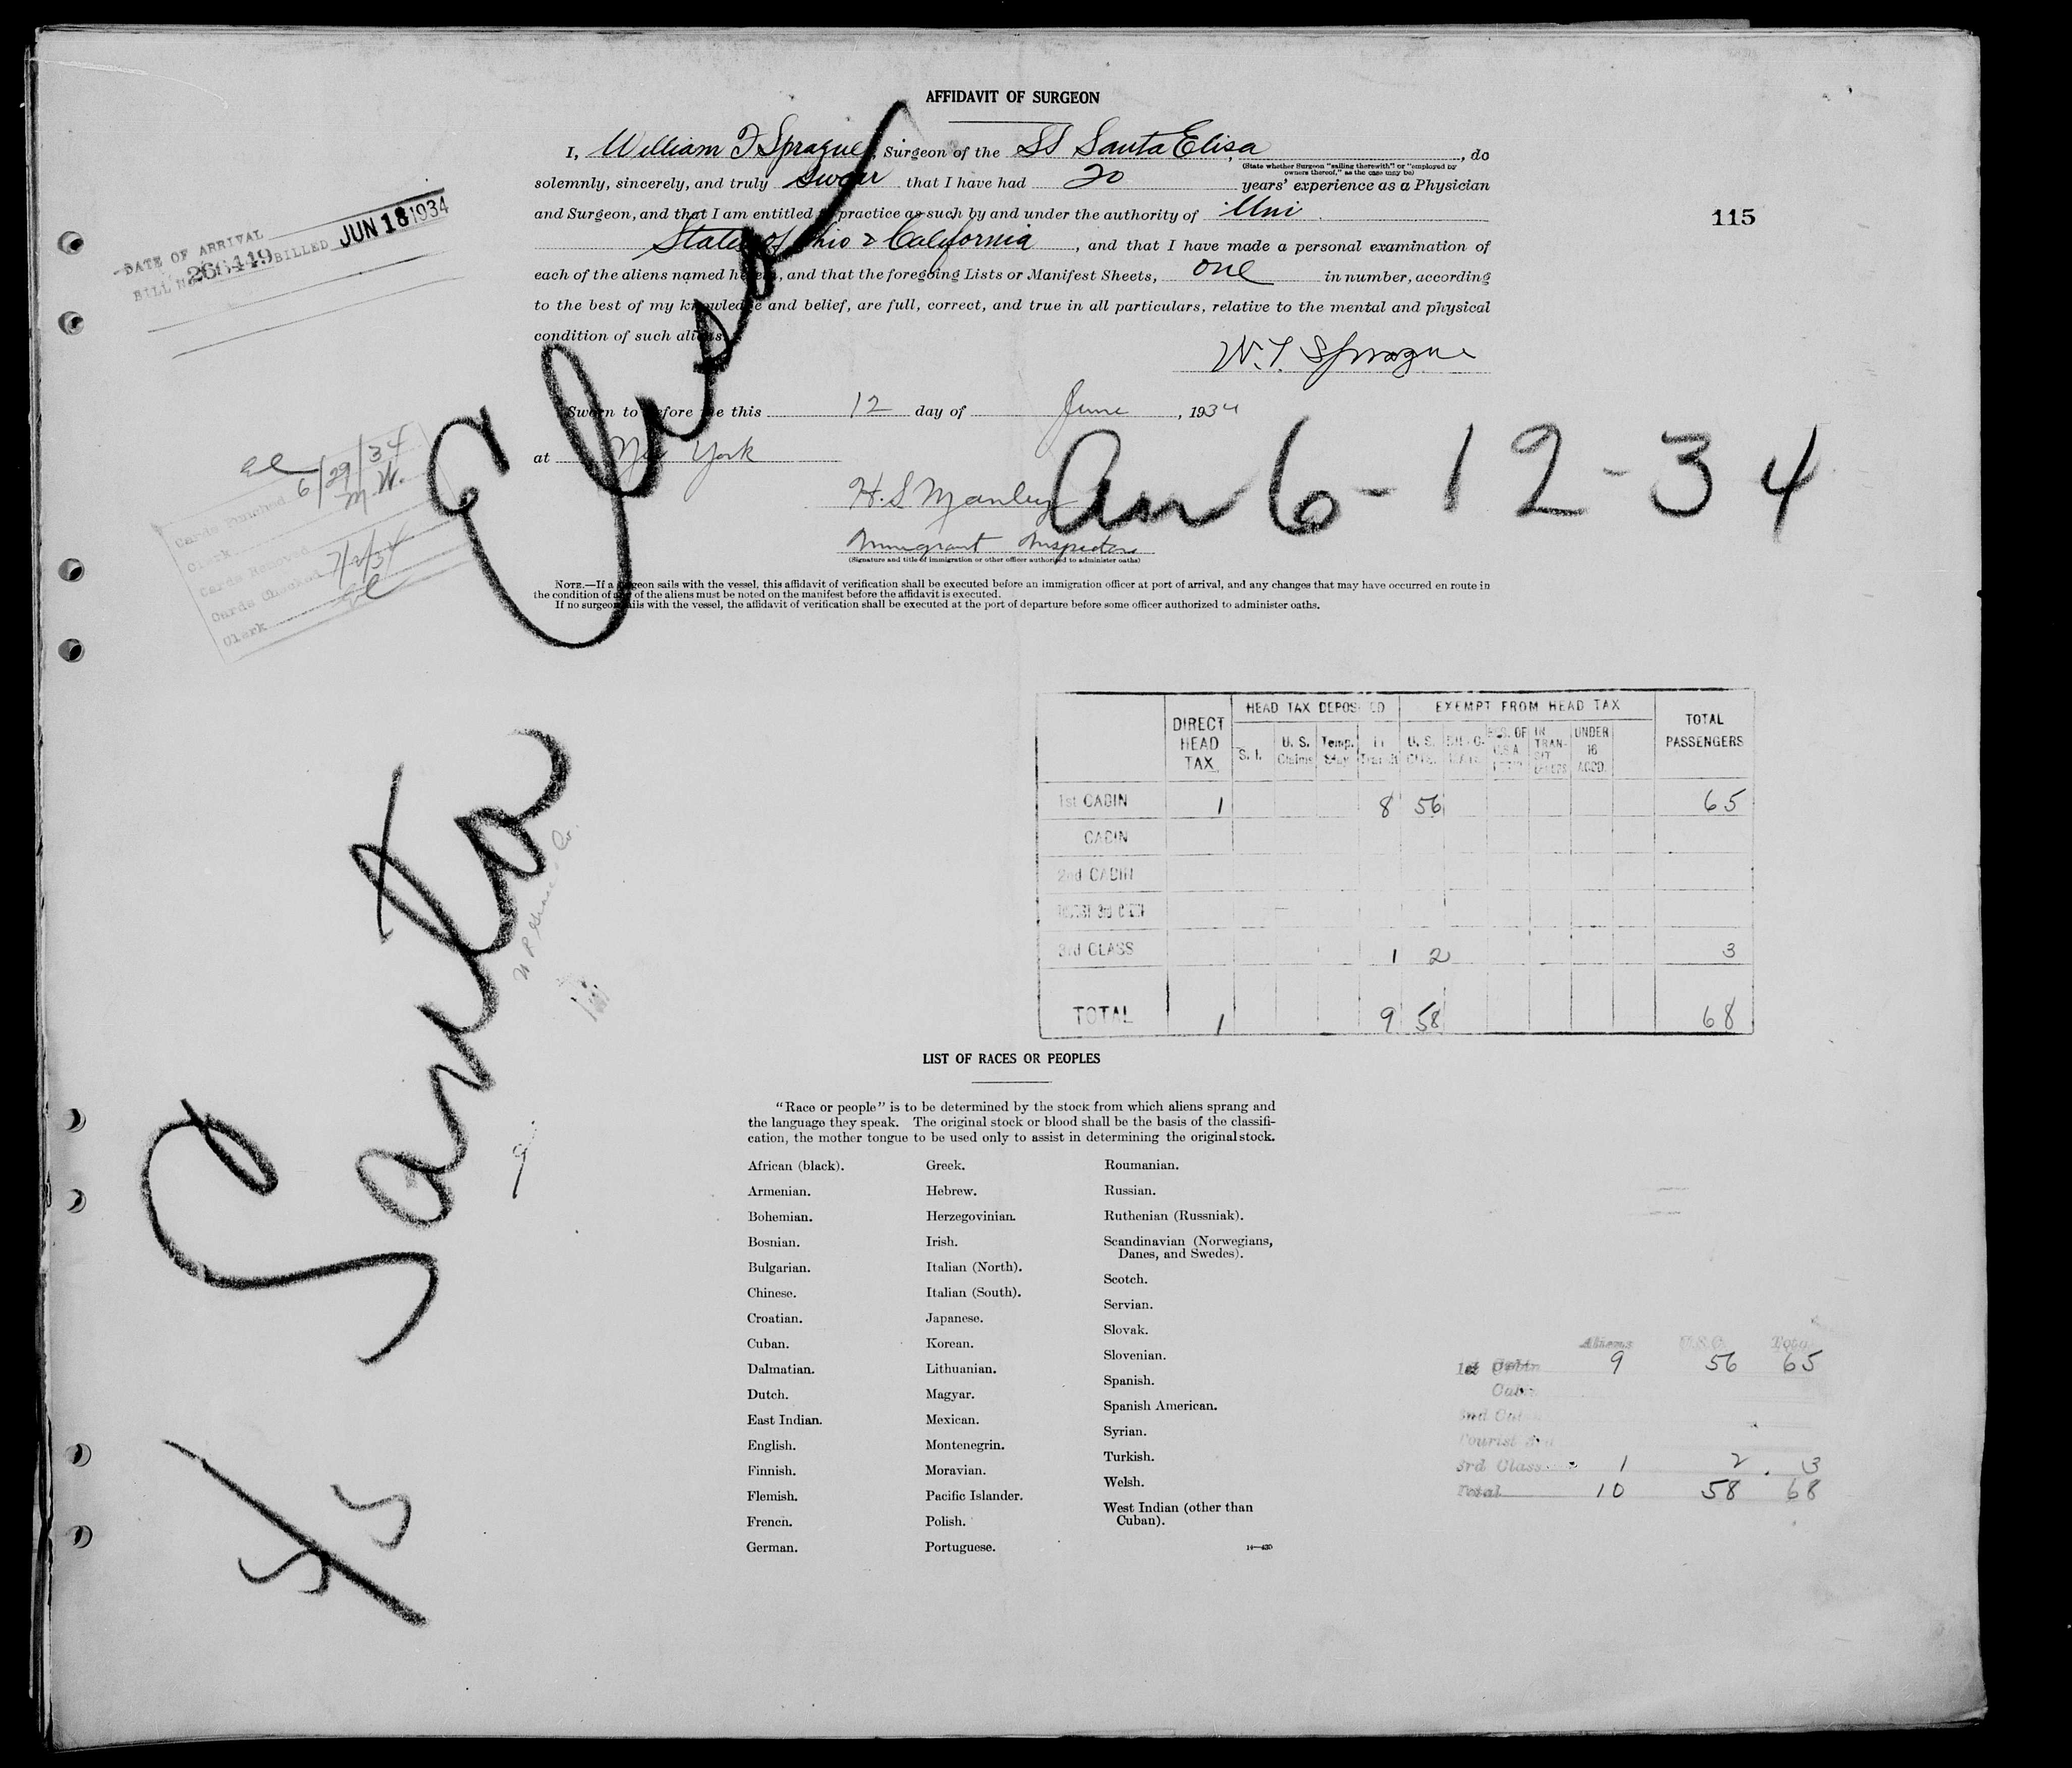 AFFIDAVIT OF SURGEON
I, William F Sprague, Surgeon of the SS Santa Elisa, do
(State whether Surgeon "sailing therewith" or "employed by
owners thereof," as the case may be)
solemnly, sincerely, and truly swear that I have had 20 years' experience as a Physician
and Surgeon, and that I am entitled to practice as such by and under the authority of Uni
States of Ohio & California, and that I have made a personal examination of
each of the aliens named herein, and that the foregoing Lists or Manifest Sheets, one in number, according
to the best of my knowledge and belief, are full, correct, and true in all particulars, relative to the mental and physical
condition of such aliens.
W.F. Sprague
Sworn to before me this 12 day of June, 1934
at New York
H. S Manley
Immigrant Inspector
(Signature and title of immigration or other officer authorized to administer oaths)
NOTE.—If a surgeon sails with the vessel, this affidavit of verification shall be executed before an immigration officer at port of arrival, and any changes that may have occurred en route in
the condition of any of the aliens must be noted on the manifest before the affidavit is executed.
If no surgeon sails with the vessel, the affidavit of verification shall be executed at the port of departure before some officer authorized to administer oaths.
115
DATE OF ARRIVAL
BILL No. 266449 BILLED JUN 18 1934
Cards Punched 6/29/34
Clerk M.W.
Cards Removed
Cards Checked 7/2/34
Clerk
S/S Santa Elisa
Arr 6-12-34
9
DIRECT HEAD TAX HEAD TAX DEPOSITED EXEMPT FROM HEAD TAX TOTAL PASSENGERS
S. I. U. S. Claims Temp. Stay In Transit U. S. UNDER 16 ACCD.
1st CABIN 1 8 56 65
CABIN
2nd CABIN
3rd CLASS 1 2 3
TOTAL 1 9 58 68
LIST OF RACES OR PEOPLES
"Race or people" is to be determined by the stock from which aliens sprang and
the language they speak. The original stock or blood shall be the basis of the classifi-
cation, the mother tongue to be used only to assist in determining the original stock.
African (black).
Armenian.
Bohemian.
Bosnian.
Bulgarian.
Chinese.
Croatian.
Cuban.
Dalmatian.
Dutch.
East Indian.
English.
Finnish.
Flemish.
French.
German.
Greek.
Hebrew.
Herzegovinian.
Irish.
Italian (North).
Italian (South).
Japanese.
Korean.
Lithuanian.
Magyar.
Mexican.
Montenegrin.
Moravian.
Pacific Islander.
Polish.
Portuguese.
Roumanian.
Russian.
Ruthenian (Russniak).
Scandinavian (Norwegians,
Danes, and Swedes).
Scotch.
Servian.
Slovak.
Slovenian.
Spanish.
Spanish American.
Syrian.
Turkish.
Welsh.
West Indian (other than
Cuban).
14—430
Aliens U.S.C. Total
1st Cabin 9 56 65
Cabin
2nd Cabin
Tourist 3rd
3rd Class 1 2 3
Total 10 58 68